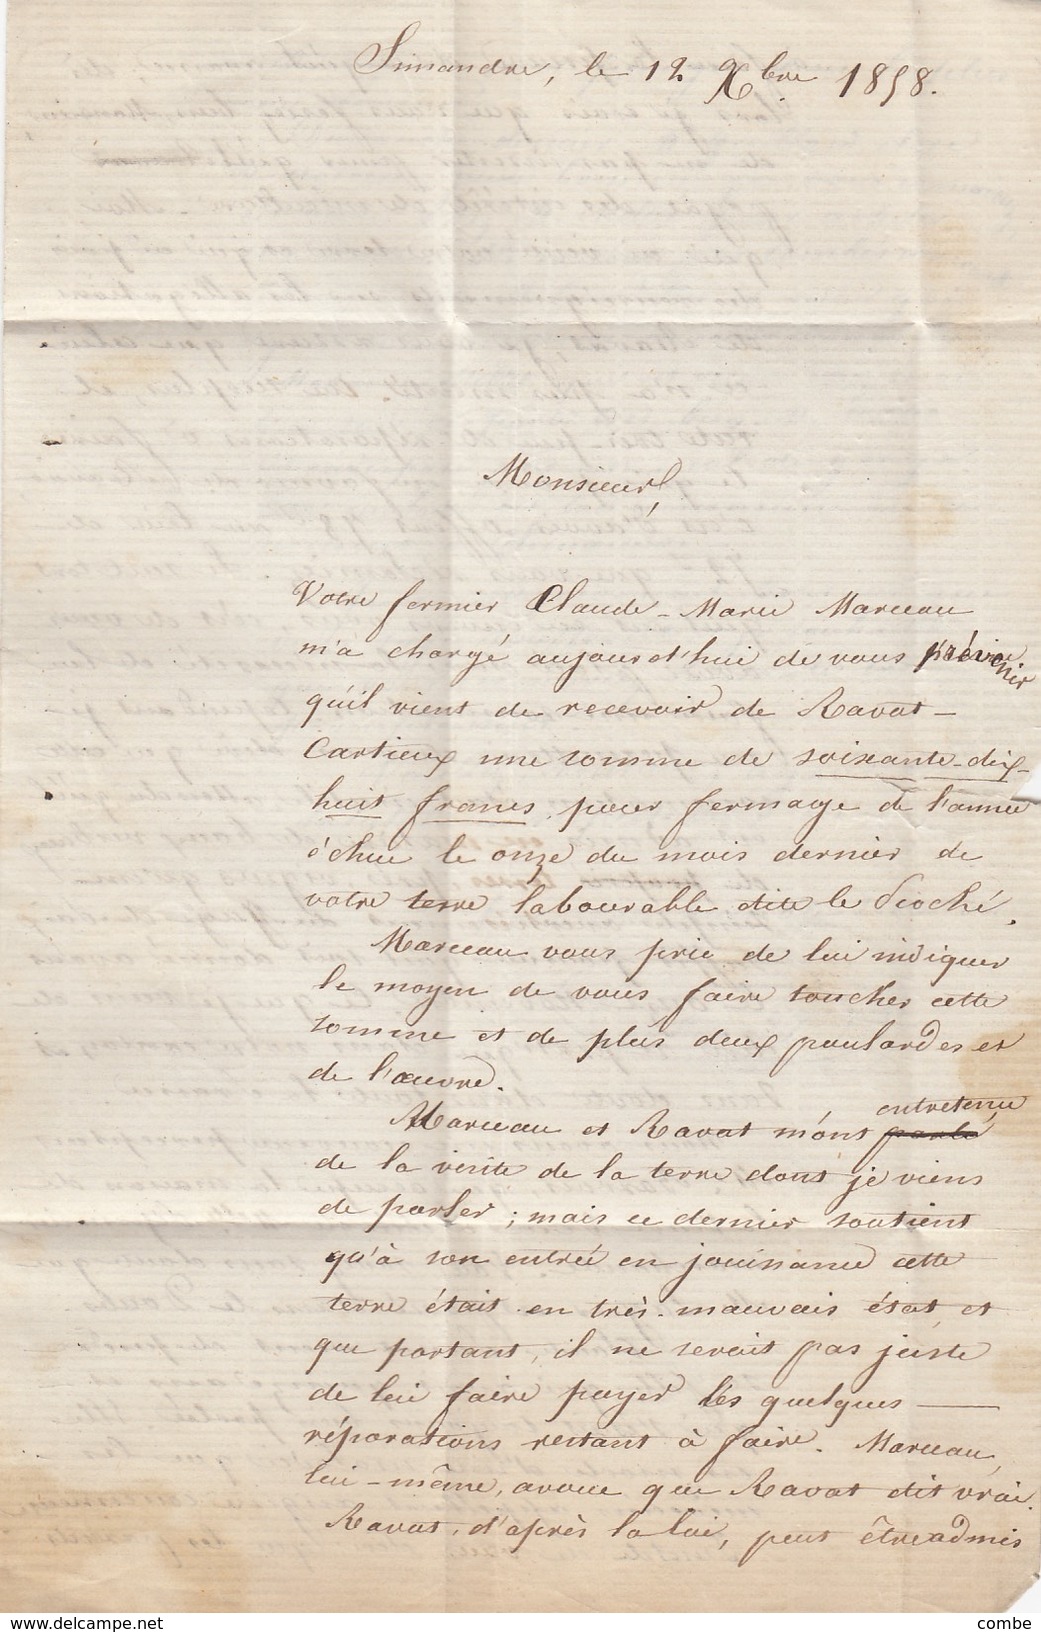 Simandre, le 12 Xbre 1858.
Monsieur,
Votre fermier Claude-Marie Marceau
m'a chargé aujourd'hui de vous prévenir
qu'il vient de recevoir de Ravat-
Cartieux une somme de soixante-dix-
huit francs, pour fermage de l'année
échue le onze du mois dernier de
votre terre labourable dite le
Marceau vous prie de lui indiquer
le moyen de vous faire toucher cette
somme et de plus deux poulardes et
de l'œuvre.
entretenu
Marceau et Ravat m'ont parlé
de la visite de la terre dont je viens
de parler ; mais ce dernier soutient
qu'à son entrée en jouissance cette
terre était en très mauvais état, et
que partant, il ne serait pas juste
de lui faire payer les quelques
réparations restant à faire. Marceau,
lui-même, avoue que Ravat dit vrai.
Ravat, d'après la loi, peut être admis
www.delcampe.net
combe